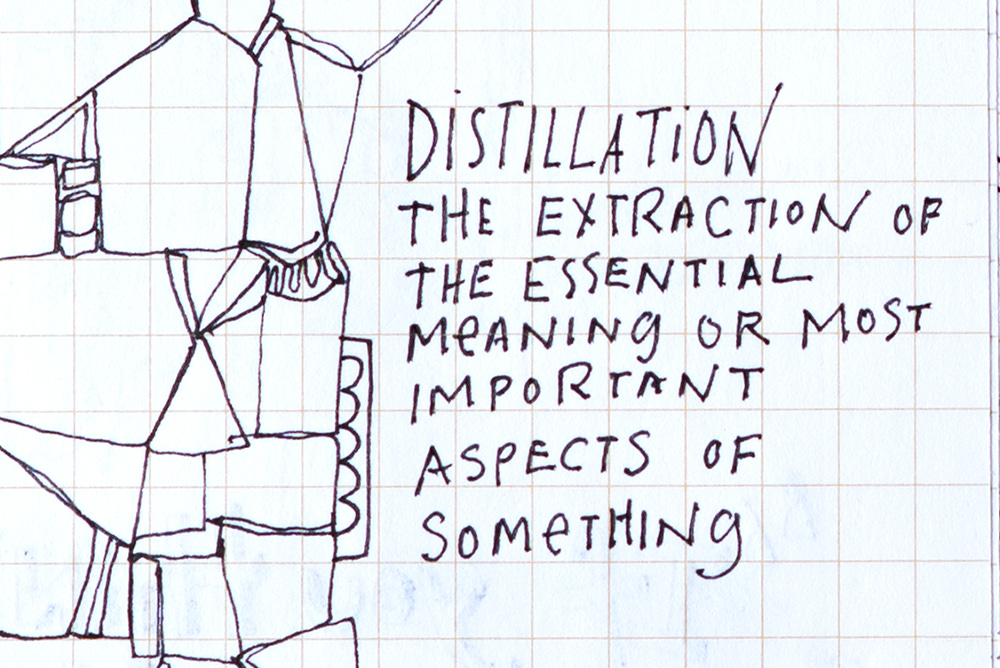 DISTILLATION
THE EXTRACTION OF
THE ESSENTIAL
MEANING OR MOST
IMPORTANT
ASPECTS OF
SOMETHING